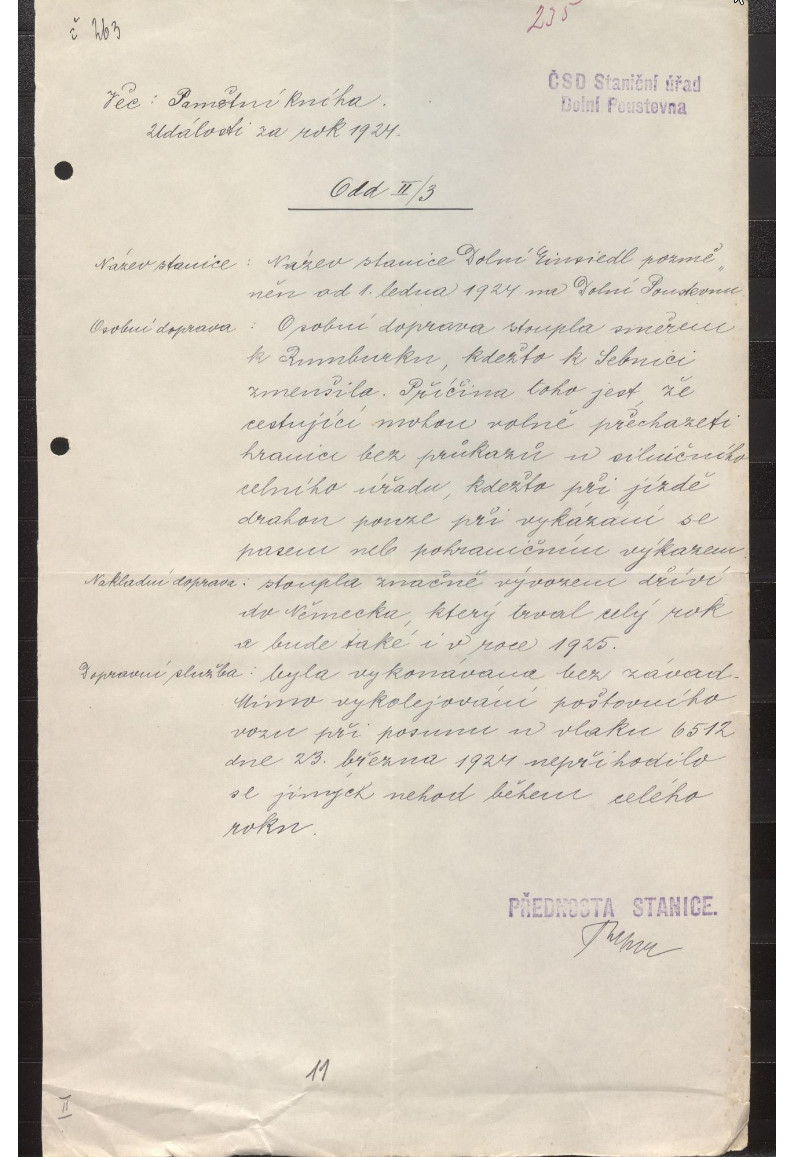 č 263
235
ČSD Staniční úřad
Dolní Poustevna
Věc: Pamětní kniha.
Události za rok 1924.
Odd II/3
Název stanice: Název stanice Dolní Einsiedl pozmě
něn od 1. ledna 1924 na Dolní Poustevnu
Osobní doprava: Osobní doprava stoupla směrem
k Rumburku, kdežto k Sebnici
zmenšila. Příčina toho jest, že
cestující mohou volně přecházeti
hranici bez průkazů u silničního
celního úřadu, kdežto při jízdě
drahou pouze při vykázání se
pasem neb pohraničním výkazem.
Nakladní doprava: stoupla značně vývozem dříví
do Německa, který trval celý rok
a bude také i v roce 1925.
Dopravní služba: byla vykonávana bez závad.
Mimo vykolejování poštovního
vozu při posunu u vlaku 6512
dne 23. března 1924 nepřihodilo
se jiných nehod během celého
roku.
PŘEDNOSTA STANICE.
11
II